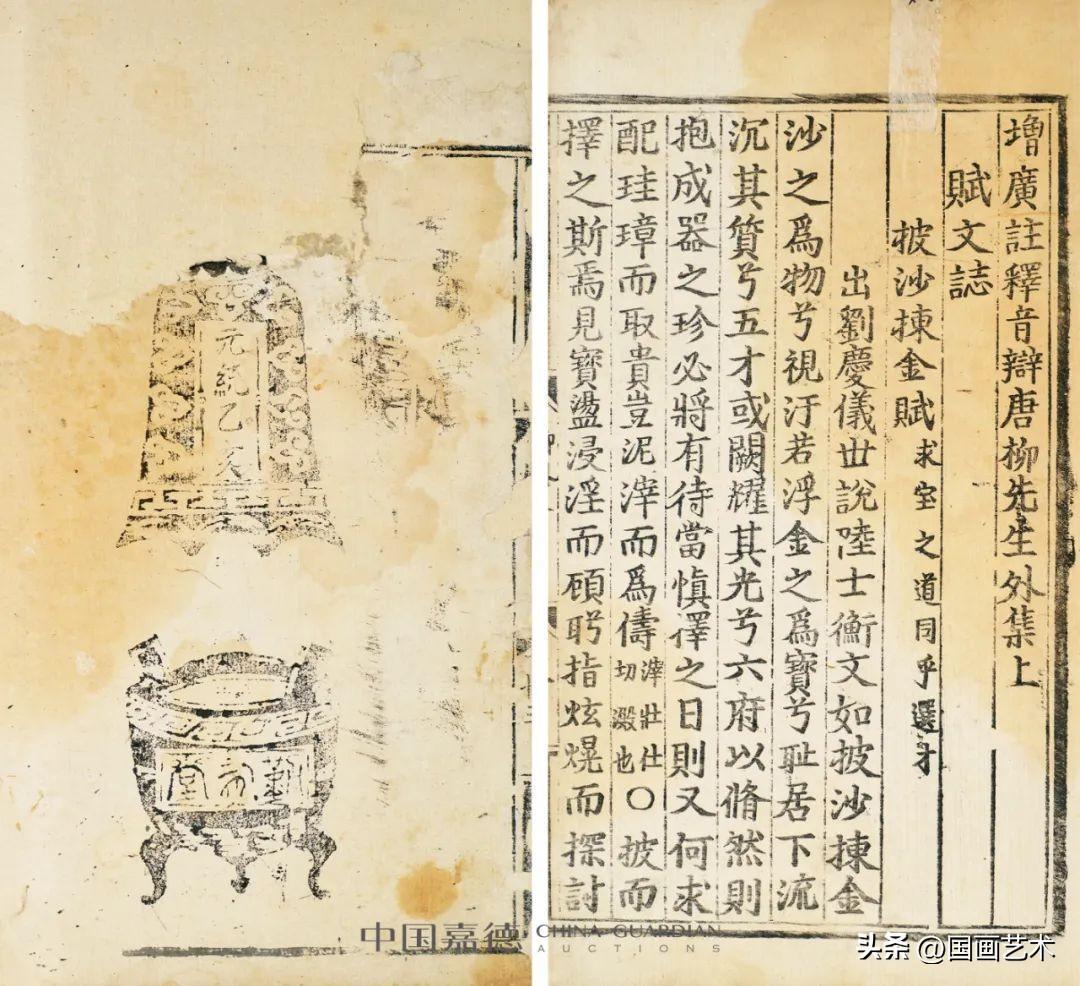 增廣註釋音辯唐柳先生外集上
賦文誌
披沙揀金賦 求宝之道同乎選才
出劉慶儀世說陸士衡文如披沙揀金
沙之為物兮視汙若浮金之為寶兮耻居下流
沉其質兮五才或闕耀其光兮六府以脩然則
抱成器之珍必將有待當慎擇之日則又何求
配珪璋而取貴豈泥滓而為儔滓壯仕切澱也〇披而
擇之斯焉見寶盪浸淫而顧眄指炫熀而探討
元統乙亥
堂
中国嘉德 CHINA GUARDIAN
AUCTIONS
头条 @国画艺术